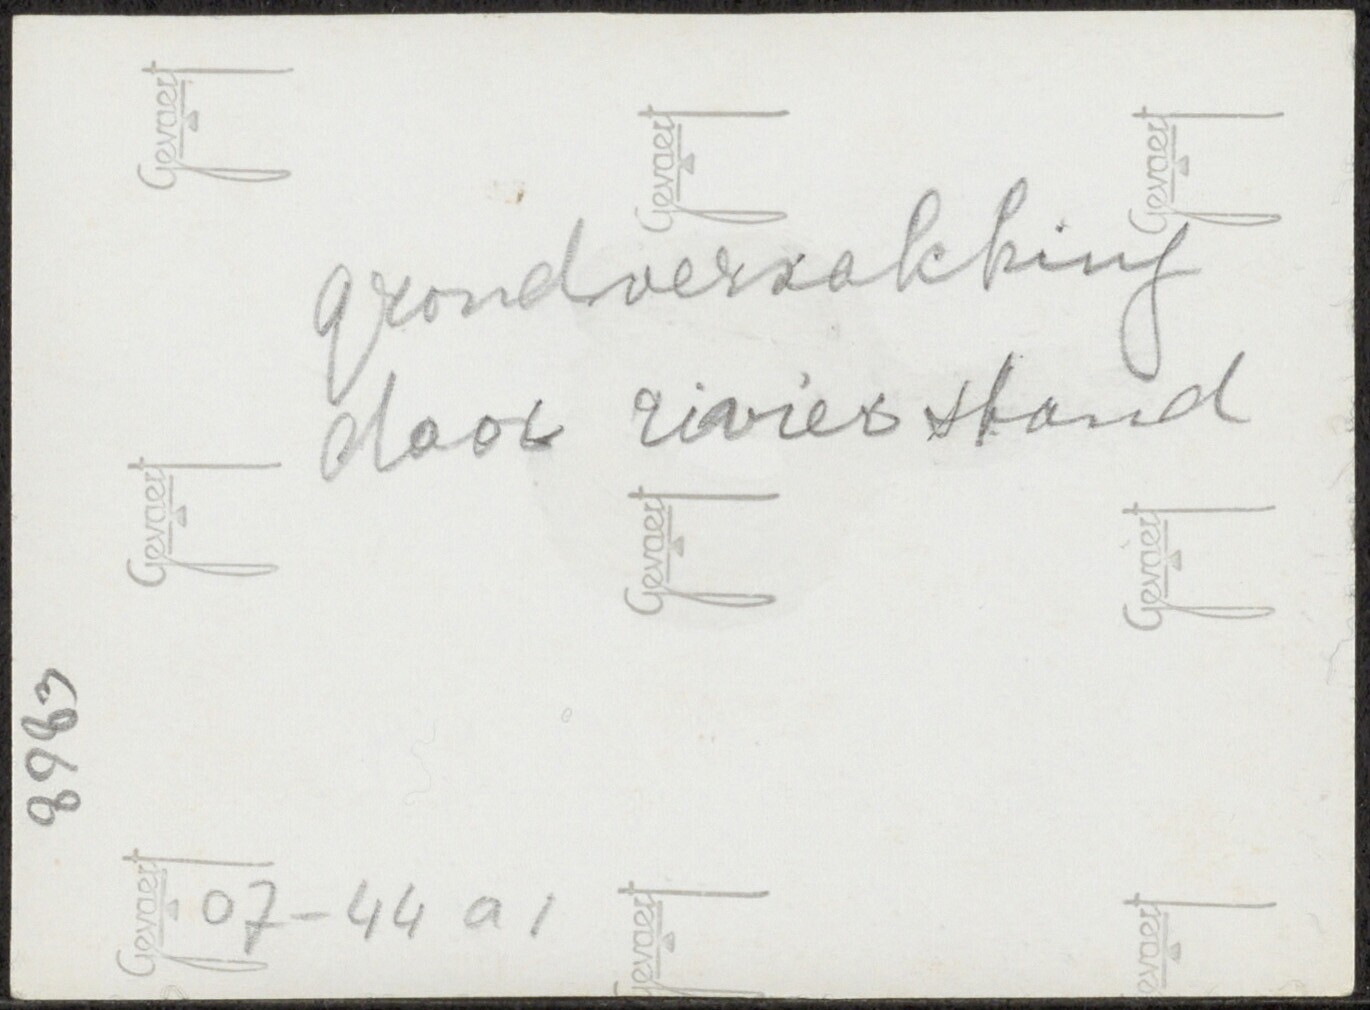 Gevaert
Gevaert
Gevaert
grondverzakking
door rivierstand
Gevaert
Gevaert
Gevaert
8983
Gevaert
07-44 a 1
Gevaert
Gevaert